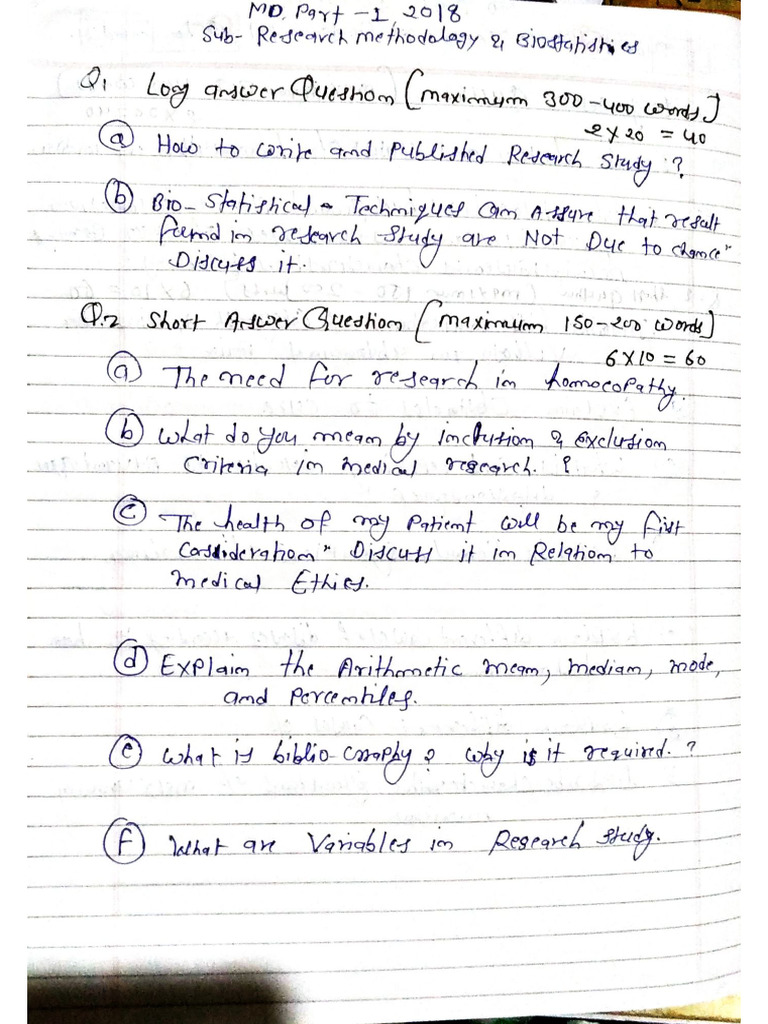 MD. Part -I, 2018
Sub- Research methodology & Biostatistics
Q1 Log answer Question (maximum 300-400 words)
2x20 = 40
(a) How to write and Published Research Study?
(b) Bio-Statistical - Techniques Can Assure that result
found in research study are Not Due to chance"
Discuss it.
Q.2 Short Answer Question (maximum 150-200 words)
6x10 = 60
(a) The need for research in homoeopathy.
(b) What do you mean by inclusion & exclusion
Criteria in medical research. ?
(c) The health of my patient will be my first
Consideration" Discuss it in Relation to
medical Ethics.
(d) Explain the Arithmetic mean, median, mode,
and Percentiles.
(e) What is biblio-graphy? why is it required. ?
(f) What are Variables in Research study.